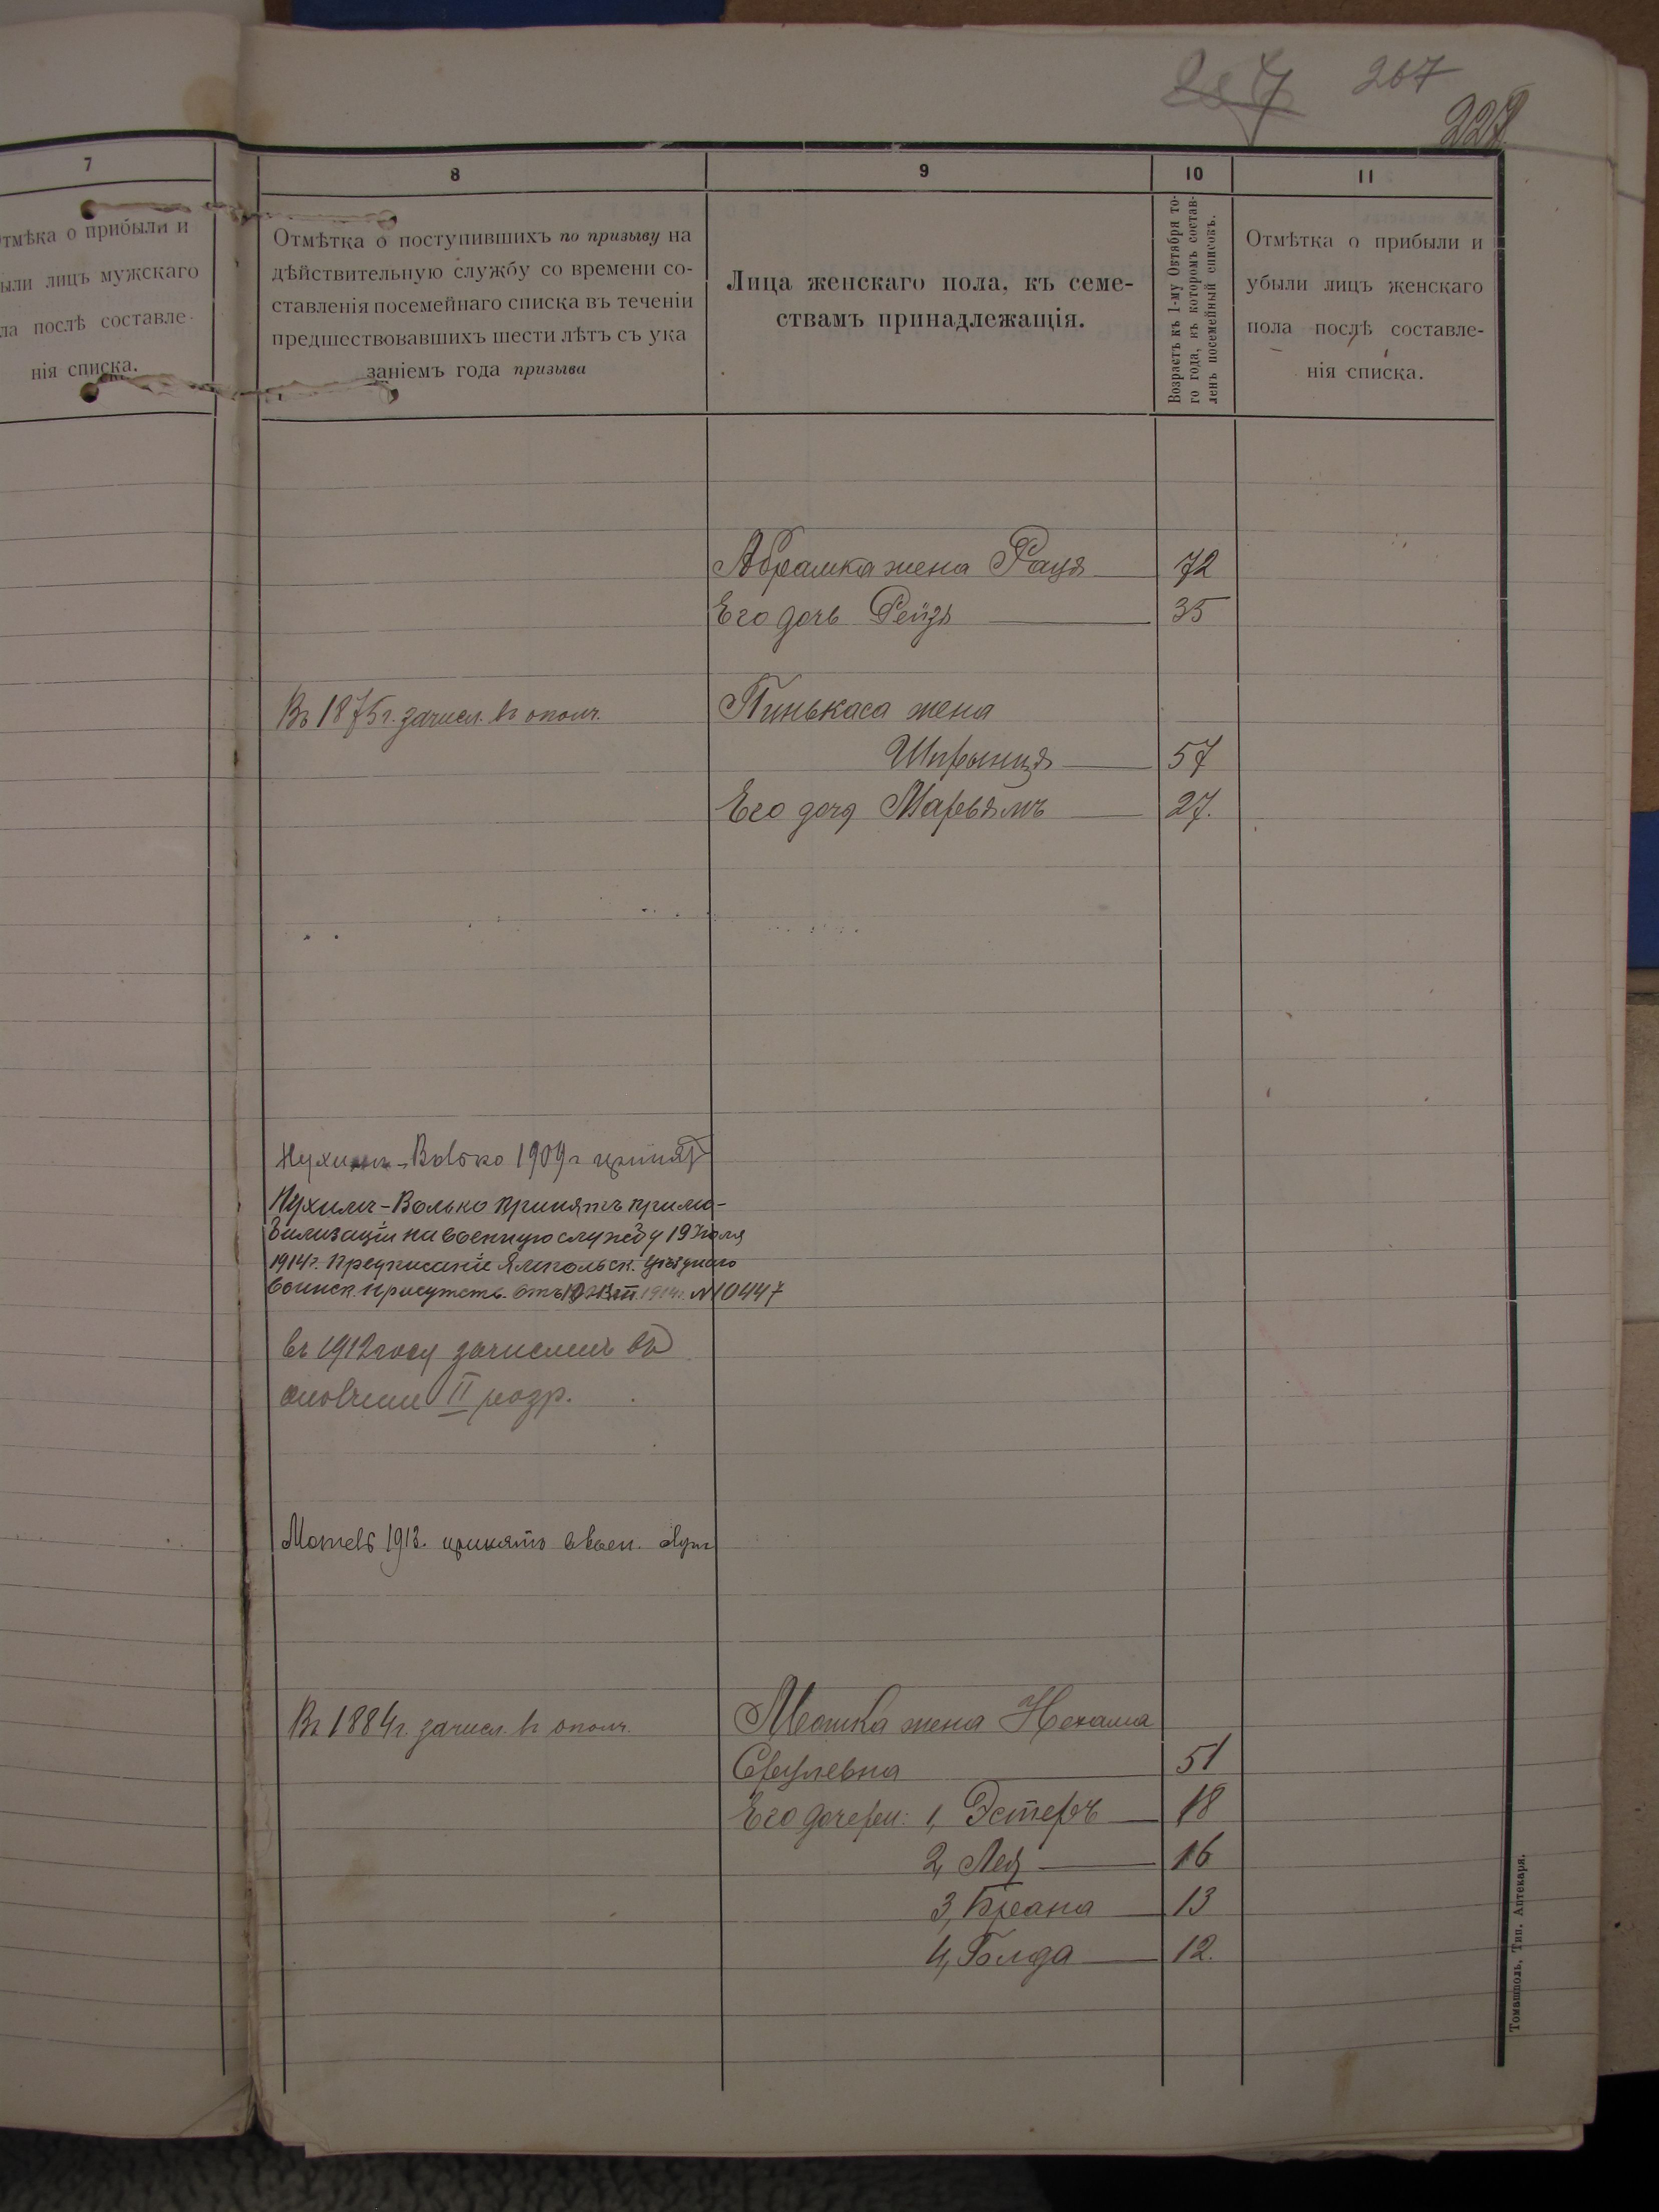 267
227
7
8
9
10
11
тмѣка о прибыли и
ыли лицъ мужскаго
ла послѣ составле-
нія списка.
Отмѣтка о поступившихъ по призыву на
дѣйствительную службу со времени со-
ставленія посемейнаго списка въ теченіи
предшествовавшихъ шести лѣтъ съ ука
заніемъ года призыва
Лица женскаго пола, къ семе-
ствамъ принадлежащія.
Возрастъ къ 1-му Октября то-
го года, къ которомъ состав-
ленъ посемейный списокъ.
Отмѣтка о прибыли и
убыли лицъ женскаго
пола послѣ составле-
нія списка.
Абрамка жена Рауя 72
Его дочь Рейзя 35
Въ 1875 г. зачисл. въ ополч.
Пинькаса жена
Шпрынця 57
Его дочь Марьямъ 27.
Нухимъ-Волько 1909 г принятъ
Нухимъ-Волько принятъ при мо-
билизаціи на военную службу 19 Іюля
1914 г. Предписаніе Ямпольск. уѣзднаго
воинск. присутств. отъ 1914 г. № 10447
въ 1912 году зачисленъ въ
ополченіе II разр.
Мотель 1913. принятъ в воен. служ
Въ 1884 г. зачисл. въ ополч.
Мошка жена Нехама
Срулевна 51
Его дочери: 1, Эстеръ 18
2, Лея 16
3, Брана 13
4, Голда 12.
Томашполь, Тип. Аптекаря.